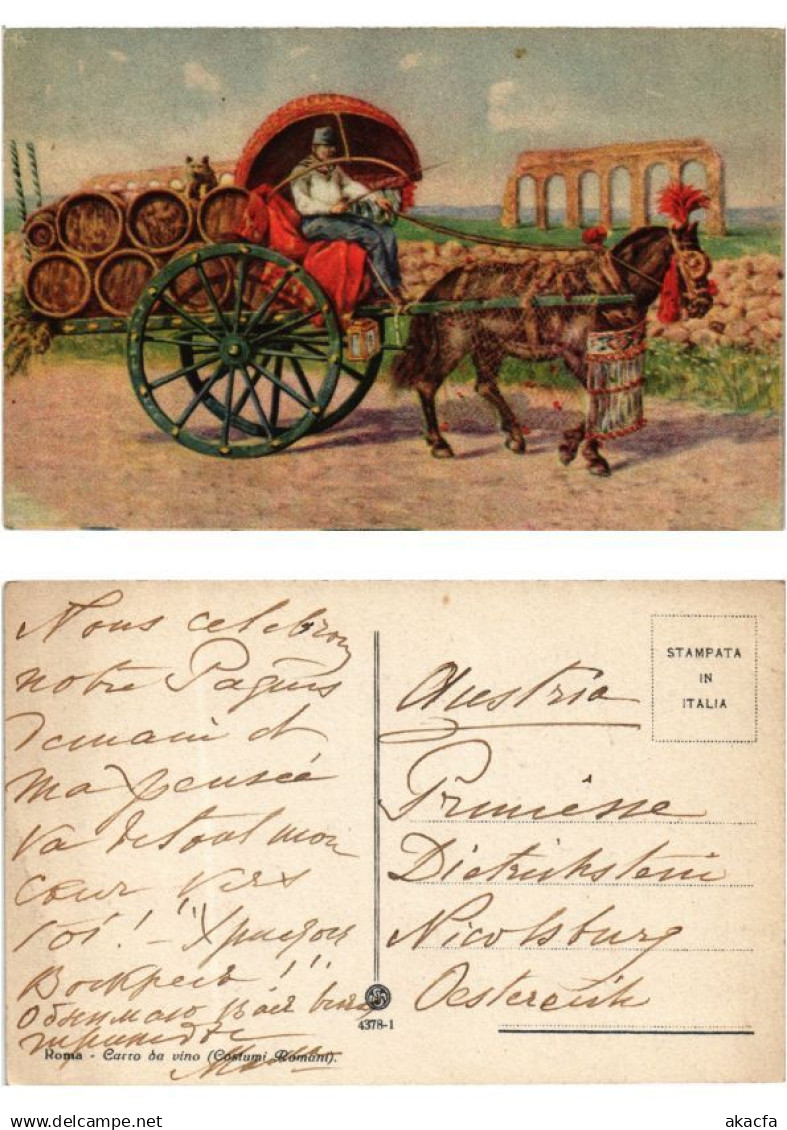 Nous celebrons
notre Paques
demain et
ma pensée
va de tout mon
cœur vers
toi! – "Христос
Воскресъ!"
Обнимаю васъ всѣхъ
STAMPATA
IN
ITALIA
Austria
Dietrichstein
Nicolsburg
Oesterreich
4378-1
Roma - Carro da vino (Costumi Romani).
www.delcampe.net
akacfa